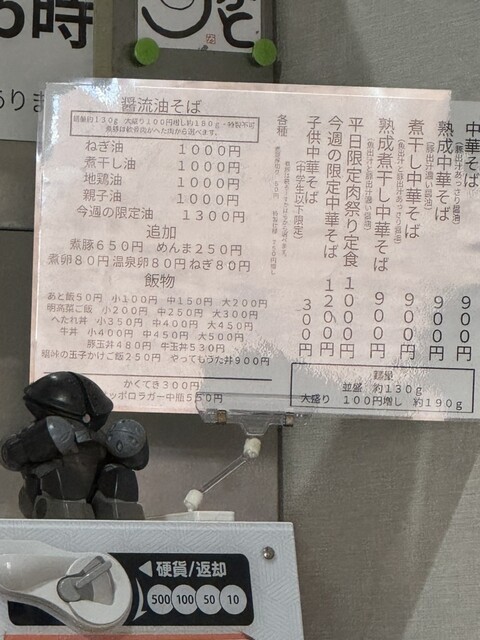 5時
醤流油そば
ねぎ油 1000円
煮干し油 1000円
地鶏油 1000円
親子油 1000円
今週の限定油 1300円
追加
煮豚650円 めんま250円
煮卵80円 温泉卵80円 ねぎ80円
飯物
あと飯50円 小100円 中150円 大200円
明高菜ご飯 小200円 中250円 大300円
へたれ丼 小350円 中400円 大450円
牛丼 小400円 中450円 大500円
豚玉丼480円 牛玉丼530円
玉子かけご飯250円 やってもうた丼900円
かくてき300円
ッポロラガー中瓶550円
中華そば 900円
熟成中華そば 900円
煮干し中華そば 900円
熟成煮干し中華そば 900円
平日限定肉祭り定食 1000円
今週の限定中華そば 1200円
子供中華そば 300円
(中学生以下限定)
各種
麺量
並盛 約130g
大盛り 100円増し 約190g
◀硬貨/返却
500 100 50 10